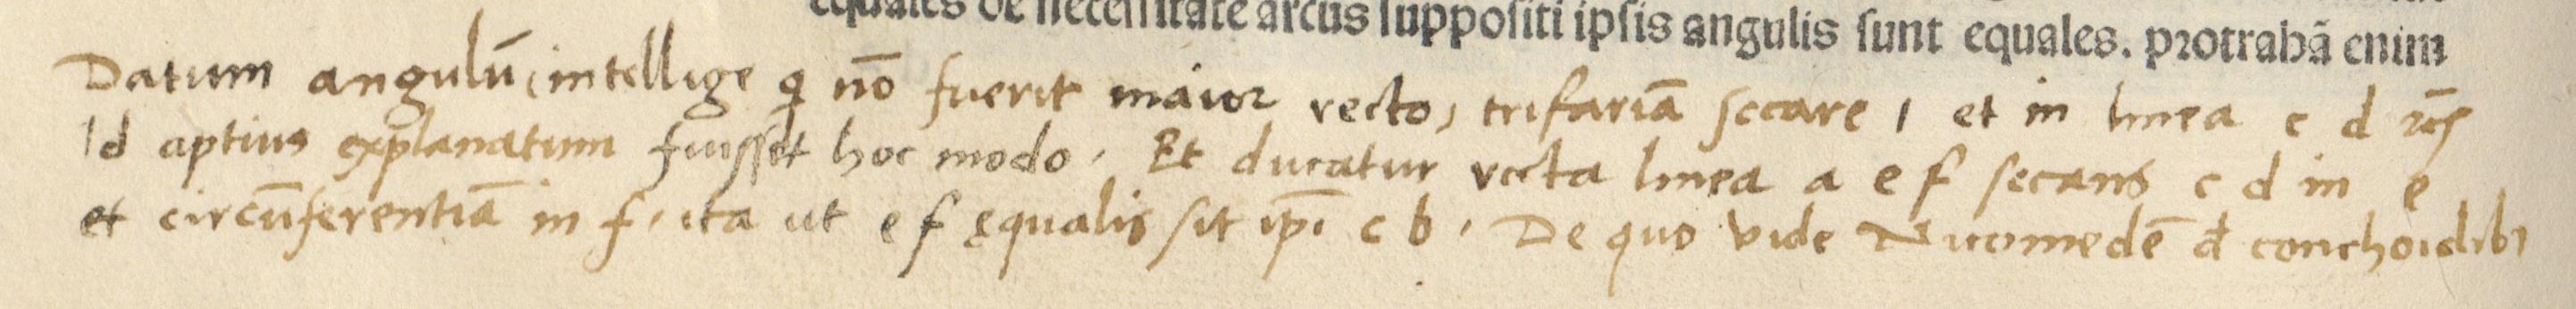 equales de necessitate arcus suppositi ipsis angulis sunt equales. protrahã enim
Datum angulū, intellige q nō fuerit maior recto, trifariā secare, et in linea c d
Id aptius explanatum fuisset hoc modo. Et ducatur recta linea a e f secans c d in e
et circūferentiā in f, ita ut e f ęqualis sit ip̄i c b. De quo vide Nicomedē đ conchoidib